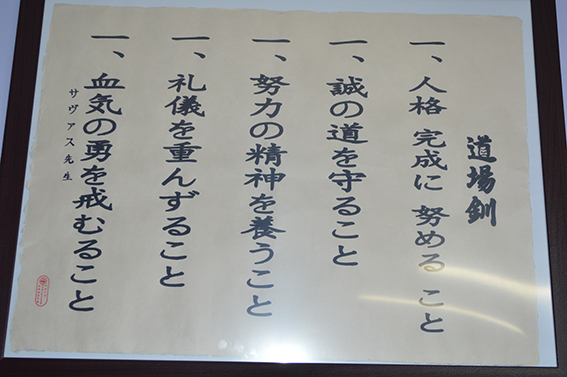 道場釧
一、人格 完成に 努める こと
一、誠の道を守ること
一、努力の精神を養うこと
一、礼儀を重んずること
一、血気の勇を戒むること
サヴァス先生